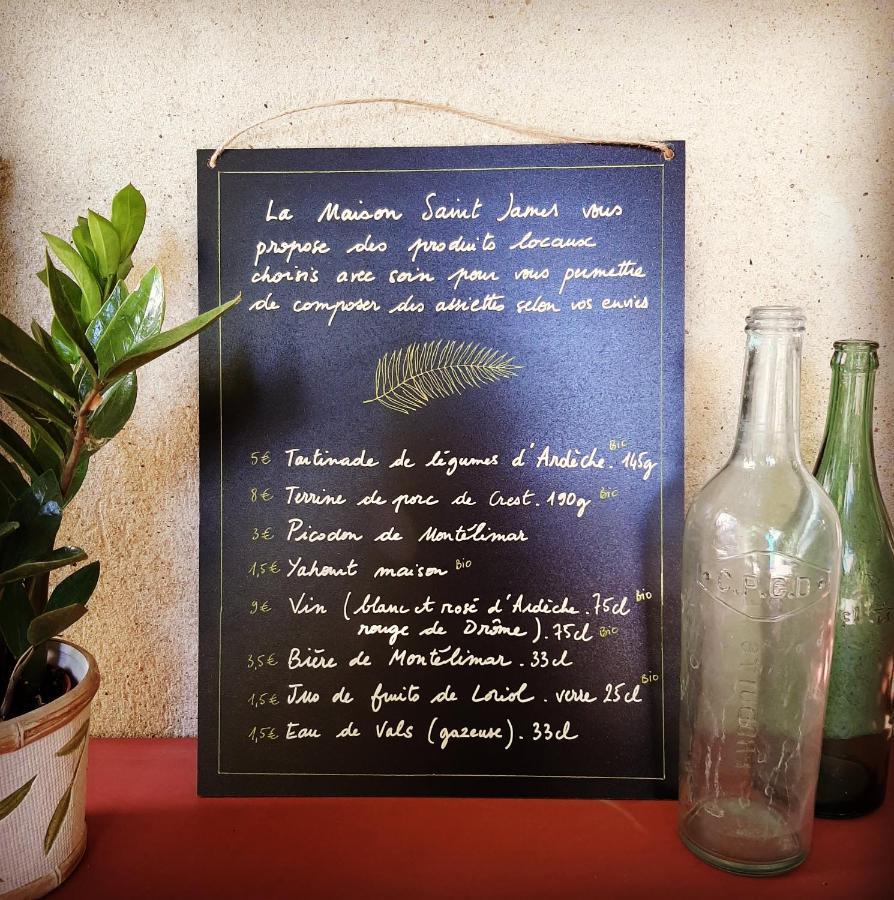 La Maison Saint James vous
propose des produits locaux
choisis avec soin pour vous permettre
de composer des assiettes selon vos envies
5€ Tartinade de légumes d'Ardèche. 145g Bio
8€ Terrine de porc de Crest. 190g Bio
3€ Picodon de Montélimar
1,5€ Yahourt maison Bio
9€ Vin (blanc et rosé d'Ardèche. 75cl Bio
rouge de Drôme). 75cl Bio
3,5€ Bière de Montélimar. 33cl
1,5€ Jus de fruits de Loriol. verre 25cl Bio
1,5€ Eau de Vals (gazeuse). 33cl
C.P.C.D